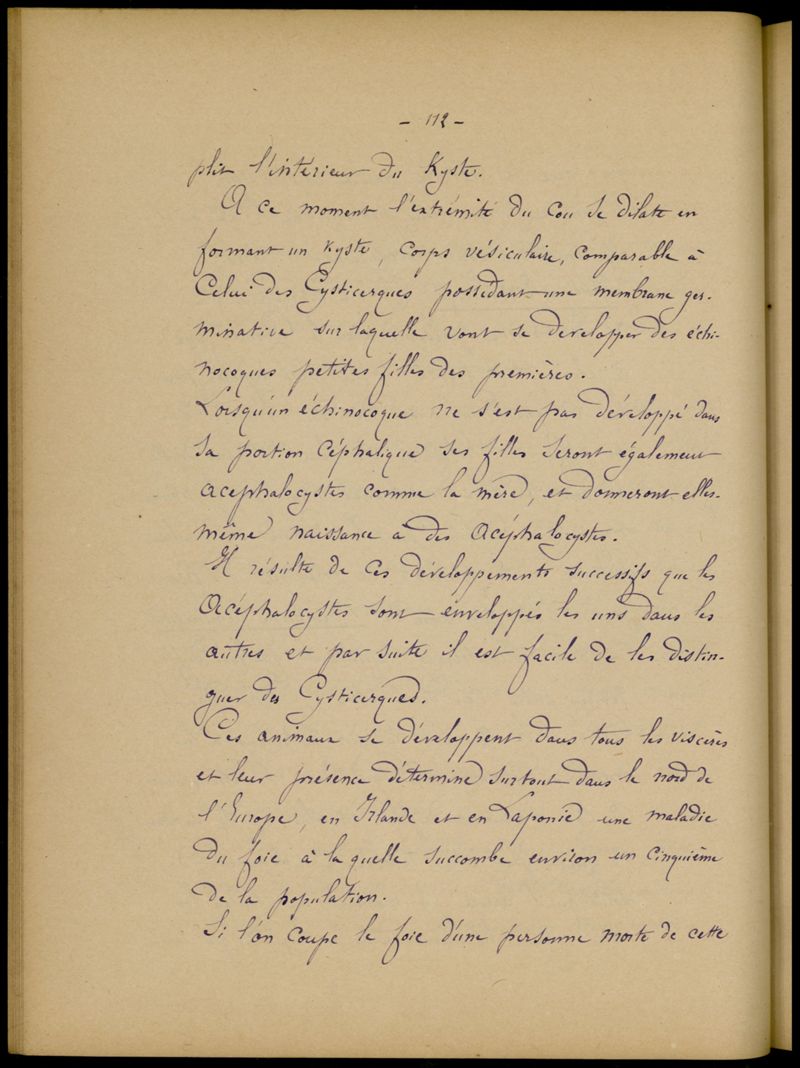 - 112 -
plit l'intérieur du Kyste.
A ce moment l'extrémité du cou se dilate en
formant un kyste, corps vésiculaire, comparable à
Celui des Cysticerques possédant une membrane ger-
minative sur laquelle vont se developper des échi-
nocoques petites filles des premières.
Lorsqu'un échinocoque ne s'est pas développé dans
sa portion céphalique ses filles seront également
acephalocystes comme la mère, et donneront elles-
même naissance à des Acéphalocystes.
Il résulte de ces développements successifs que les
Acéphalocystes sont enveloppés les uns dans les
autres et par suite il est facile de les distin-
guer des Cysticerques.
Ces animaux se développent dans tous les viscères
et leur présence détermine surtout dans le nord de
l'Europe, en Irlande et en Laponie une maladie
du foie à laquelle succombe environ un cinquième
de la population.
Si l'on coupe le foie d'une personne morte de cette